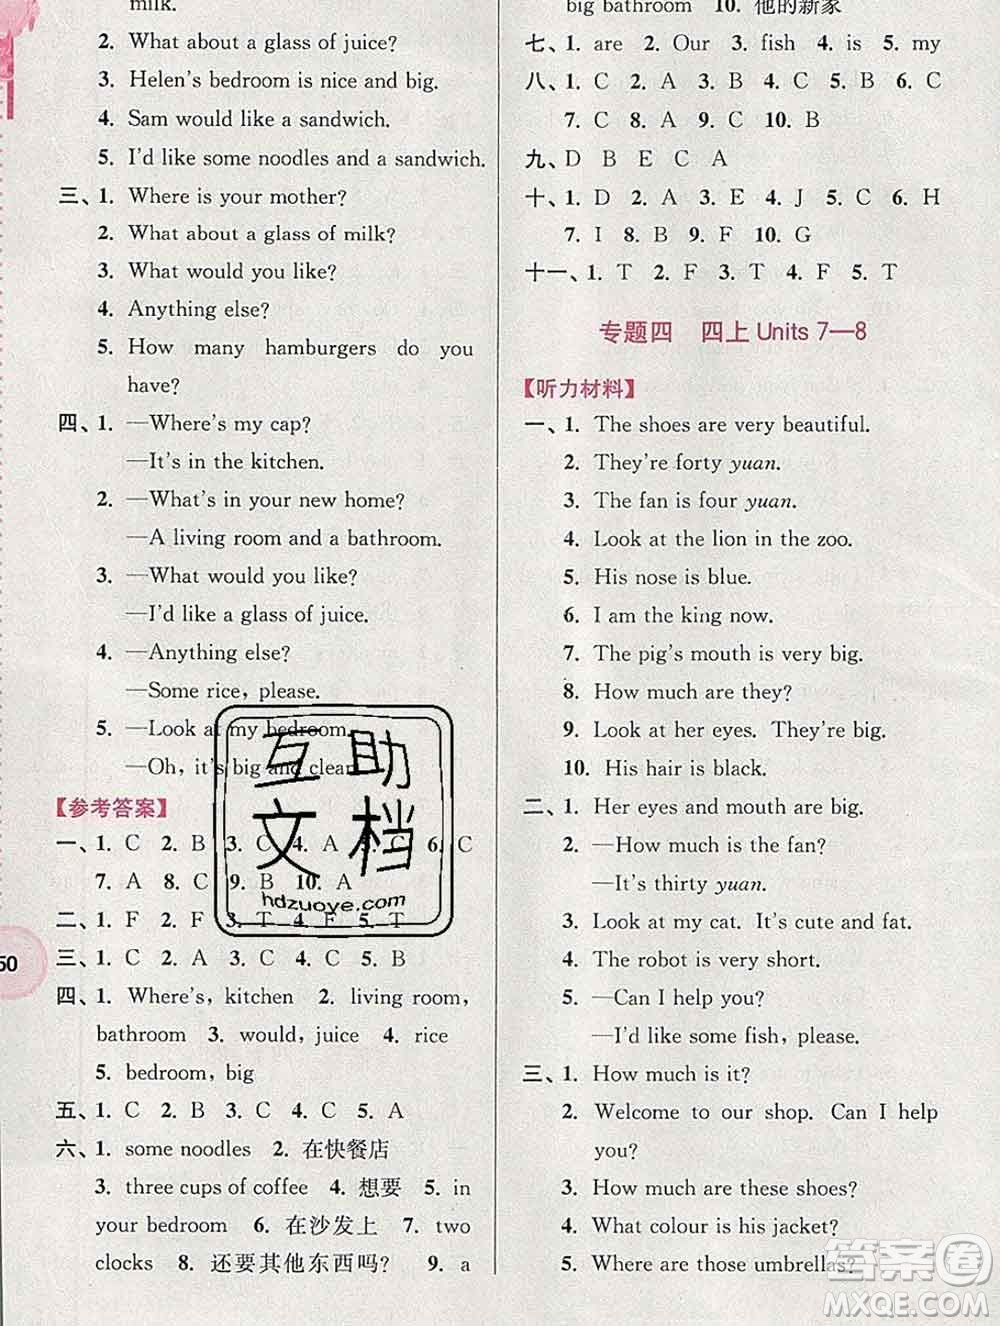 milk.
2. What about a glass of juice?
3. Helen's bedroom is nice and big.
4. Sam would like a sandwich.
5. I'd like some noodles and a sandwich.
三、1. Where is your mother?
2. What about a glass of milk?
3. What would you like?
4. Anything else?
5. How many hamburgers do you
have?
四、1. —Where's my cap?
—It's in the kitchen.
2. —What's in your new home?
—A living room and a bathroom.
3. —What would you like?
—I'd like a glass of juice.
4. —Anything else?
—Some rice, please.
5. —Look at my bedroom.
—Oh, it's big and clean
【参考答案】
一、1. C 2. B 3. C 4. A 5. C 6. C
7. A 8. C 9. B 10. A
二、1. F 2. F 3. T 4. F 5. T
三、1. C 2. A 3. B 4. C 5. B
四、1. Where's, kitchen 2. living room,
bathroom 3. would, juice 4. rice
5. bedroom, big
五、1. C 2. B 3. B 4. C 5. A
六、1. some noodles 2. 在快餐店
3. three cups of coffee 4. 想要 5. in
your bedroom 6. 在沙发上 7. two
clocks 8. 还要其他东西吗? 9. a
50
big bathroom 10. 他的新家
七、1. are 2. Our 3. fish 4. is 5. my
八、1. C 2. A 3. B 4. C 5. B 6. C
7. C 8. A 9. C 10. B
九、D B E C A
十、1. D 2. A 3. E 4. J 5. C 6. H
7. I 8. B 9. F 10. G
十一、1. T 2. F 3. T 4. F 5. T
专题四 四上 Units 7—8
【听力材料】
一、1. The shoes are very beautiful.
2. They're forty yuan.
3. The fan is four yuan.
4. Look at the lion in the zoo.
5. His nose is blue.
6. I am the king now.
7. The pig's mouth is very big.
8. How much are they?
9. Look at her eyes. They're big.
10. His hair is black.
二、1. Her eyes and mouth are big.
2. —How much is the fan?
—It's thirty yuan.
3. Look at my cat. It's cute and fat.
4. The robot is very short.
5. —Can I help you?
—I'd like some fish, please.
三、1. How much is it?
2. Welcome to our shop. Can I help
you?
3. How much are these shoes?
4. What colour is his jacket?
5. Where are those umbrellas?
互助
文档
hdzuoye.com
答案圈
MXQE.COM